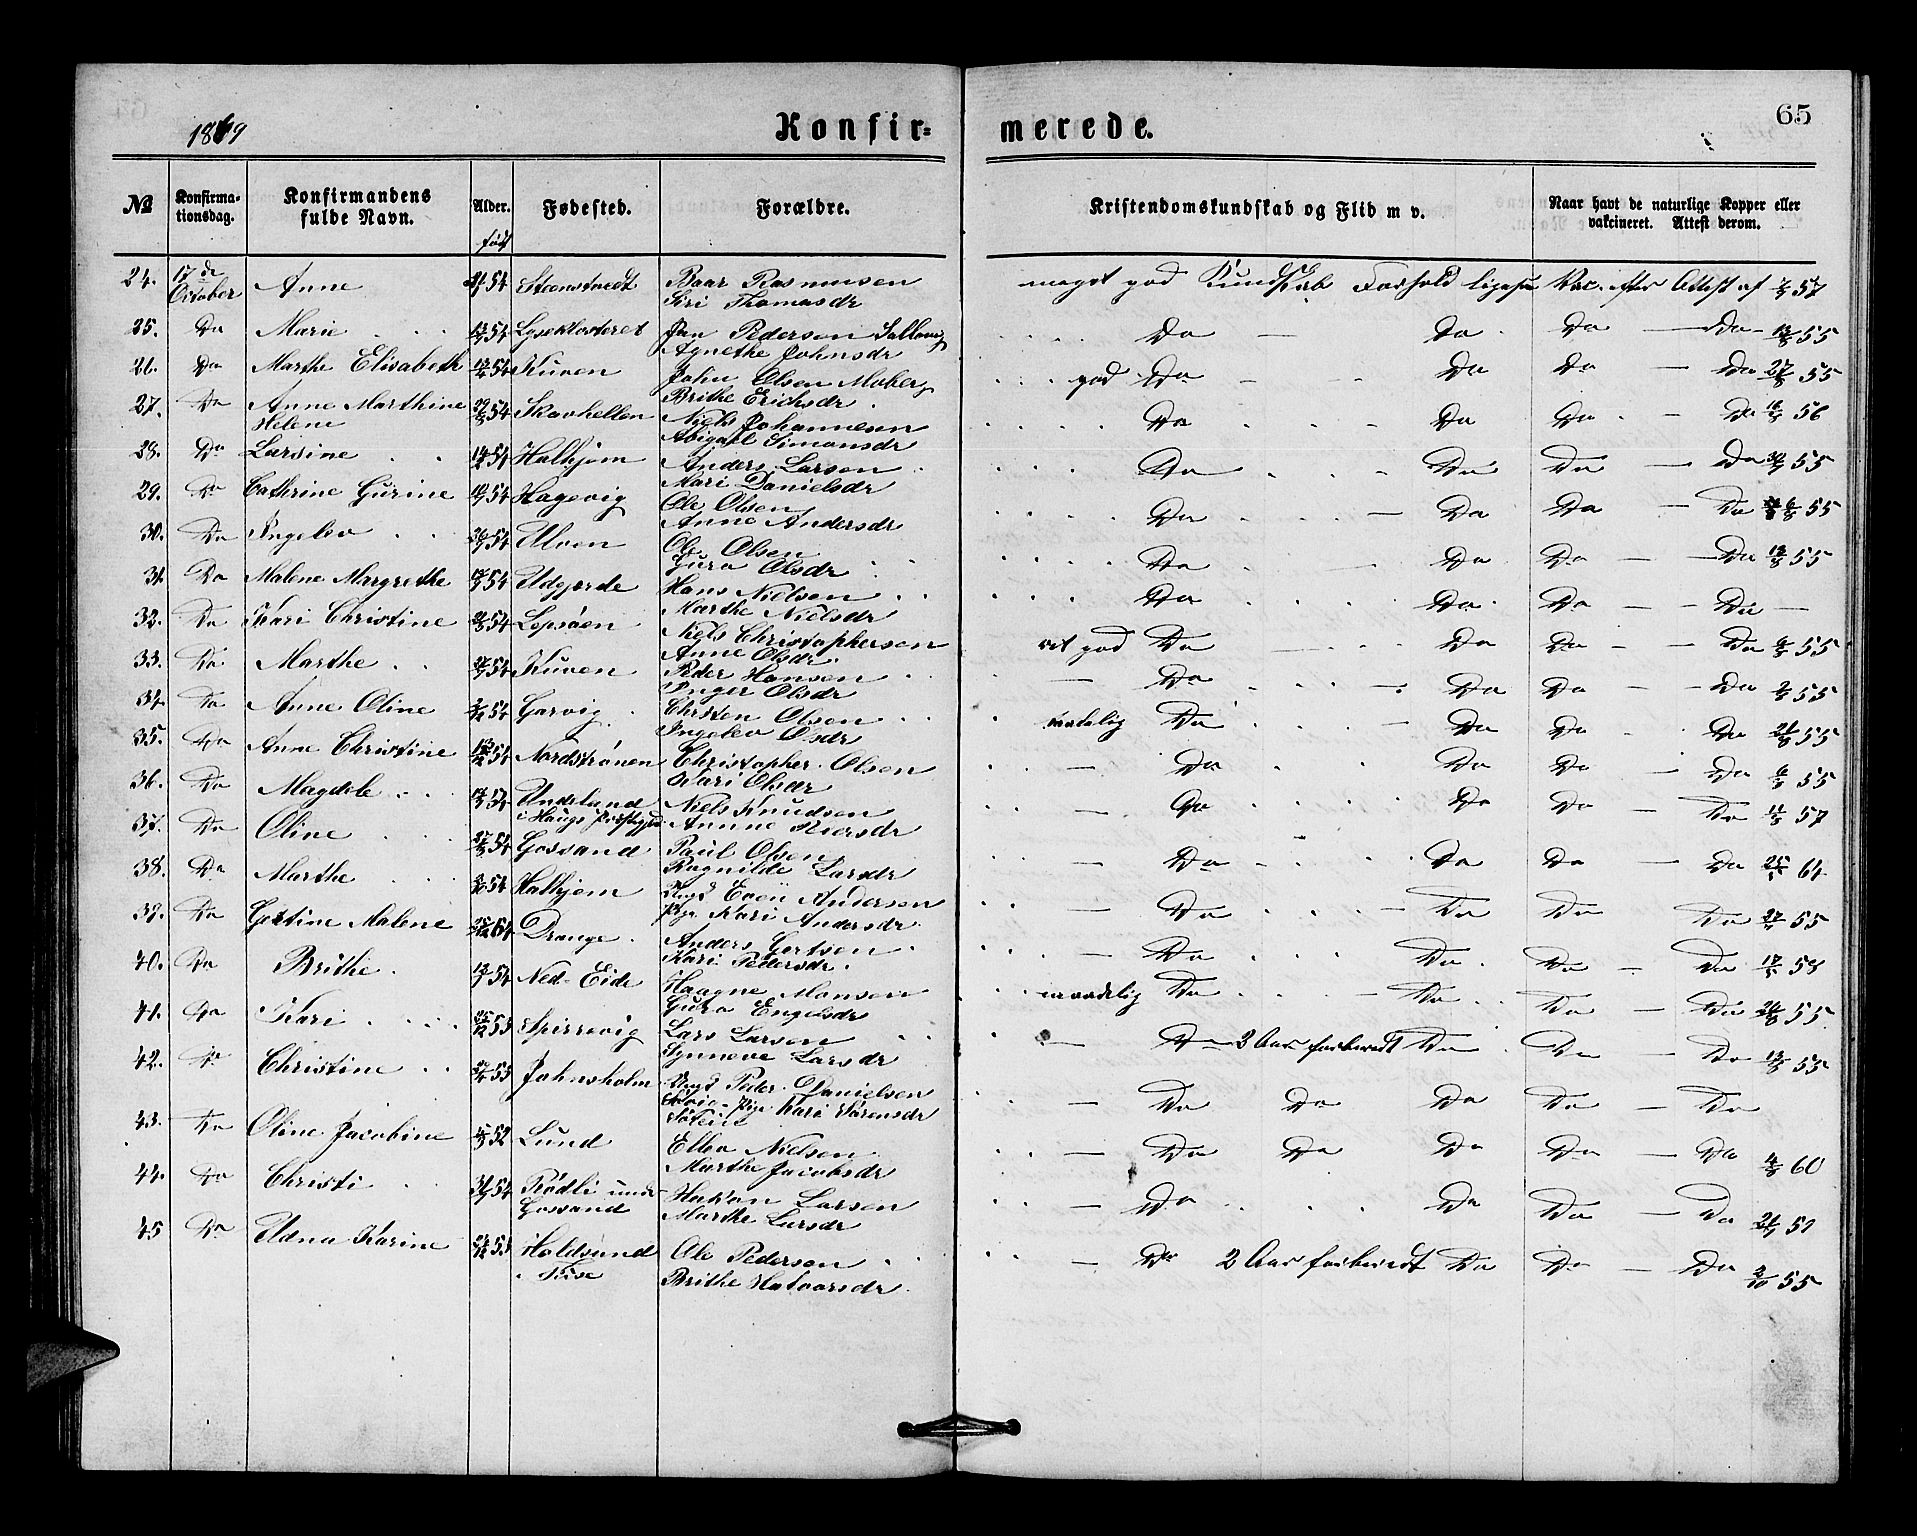 1869
Konfir=
merede.
65
№
Konfirma-
tionsdag.
Konfirmandens
fulde Navn.
Alder.
født
Fødested.
Forældre.
Kristendomskundskab og Flid m v.
Naar havt de naturlige Kopper eller
vakcineret. Attest derom.
24. 17 de October Anne 54 Baar Rasmussen
Siri Thomasdr
meget god Kundskab Forhold Vac. efter Attest af 57
25. Do Marie 54 Lyseklosteret Jan Pedersen
Agnethe Johnsdr
Do Do Do Do 55
26. Do Marthe Elisabeth 54 Kuven John Olsen Moberg
Brithe Erichsdr
god Do Do Do Do 55
27. Do Anne Marthine 54 Skavhellen Niels Johannesen
Helene Abigael Simonsdr
Do Do Do Do 56
28. Do Larsine 54 Halhjem Anders Larsen
Mari Danielsdr
Do Do Do Do 55
29. Do Cathrine Gurine 54 Hagevig Ole Olsen
Anne Andersdr
Do Do Do Do 55
30. Do Ingelev 54 Ulven Ole Olsen
Guro Olsdr
Do Do Do Do 55
31. Do Malene Margrethe 54 Udgjerde Hans Nielsen
Marthe Nielsdr
Do Do Do Do
32. Do Kari Christine 54 Lepsøen Niels Christophersen
Anne Olsdr
god Do Do Do Do 55
33. Do Marthe 54 Kuven Peder Hansen
Inger Olsdr
Do Do Do Do 55
34. Do Anne Oline 54 Garvig Christen Olsen
Ingelev Olsdr
maadelig Do Do Do Do 55
35. Do Anna Christine 54 Nordstrønen Christopher Olsen
Kari Olsdr
Do Do Do Do 55
36. Do Magdele 54 Undeland Niels Knudsen
i Haugs
Do Do Do Do 57
37. Do Oline 54 Gossand Paul Olsen
Ragnilde Larsdr
Do Do Do Do 64
38. Do Marthe 54 Halhjem Ungk Even Andersen
Pige Kari Andersdr
Do Do Do Do 55
39. Do Gertine Malene Drange Anders Gertsen
Kari Pedersdr
Do Do Do Do
40. Do Brithe 54 Ned-Eide Haagne Monsen
Guro Engelsdr
maadelig Do Do Do Do 55
41. Do Kari 53 Spirrevig Lars Larsen
Synneve Larsdr
Do 3 Aar forberedt Do Do Do 55
42. Do Christine 53 Johnsholm Peder Danielsen
Pige Kari Sørensdr
Do Do Do Do Do
43. Do Oline Jacobine 52 Lund Ellev Nielsen
Marthe Jacobsdr
Do Do Do Do Do 60
44. Do Christi 54 Rødli under Hakon Larsen
Gossand Marthe Larsdr
Do Do Do Do
45 Do Karine 53 Holdsund Ole Pedersen
Brithe Halvorsdr
Do 2 Aar forberedt Do Do Do 55